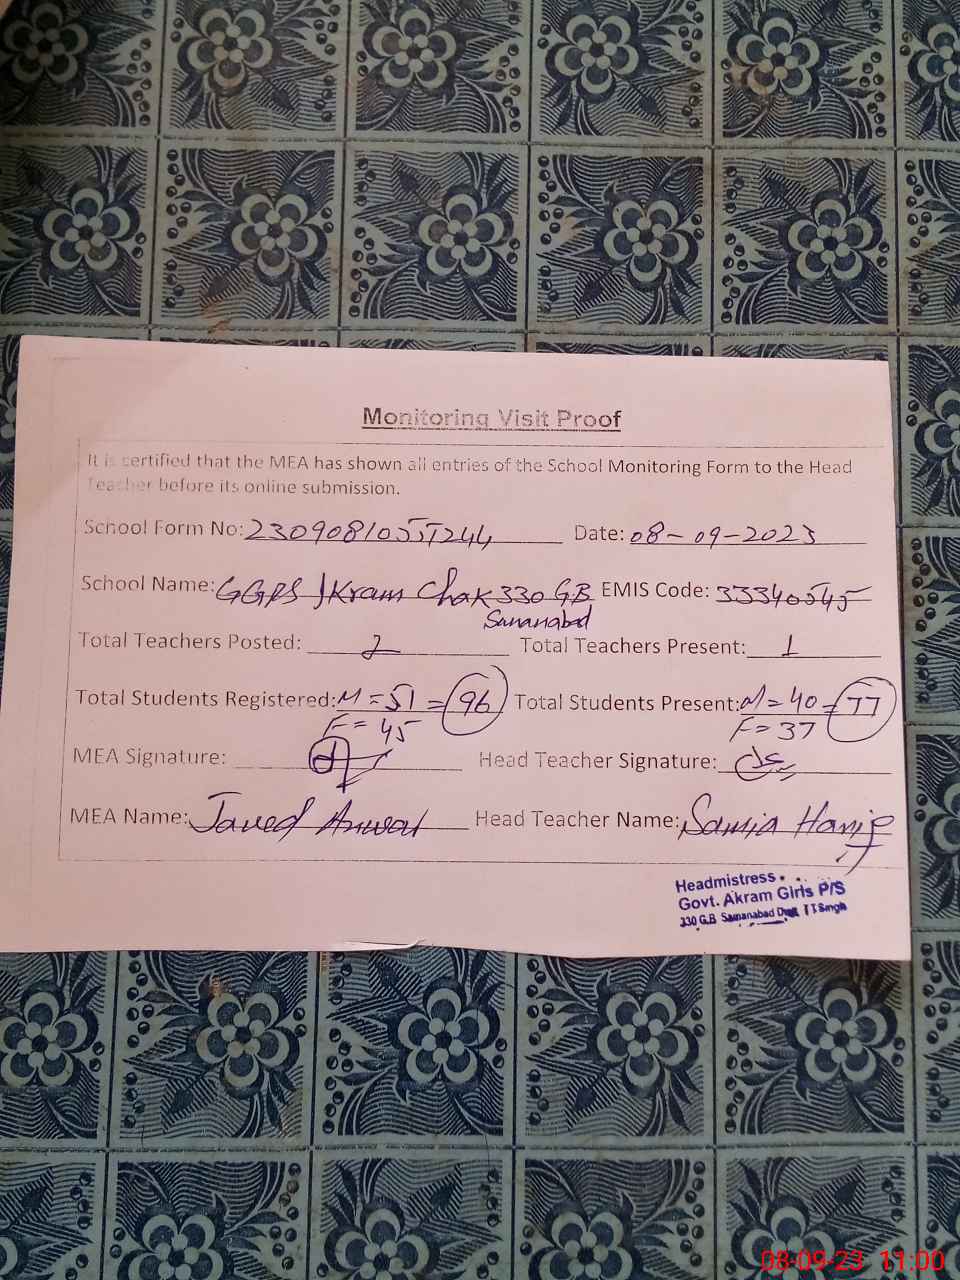 Monitoring Visit Proof
It is certified that the MEA has shown all entries of the School Monitoring Form to the Head
Teacher before its online submission.
School Form No: 23090810551244 Date: 08-09-2023
School Name: GGPS Ikram Chak 330 GB EMIS Code: 33340545
Samanabad
Total Teachers Posted: 2 Total Teachers Present: 1
Total Students Registered: M = 51 = 96 Total Students Present: M = 40 = 77
F = 45 F = 37
MEA Signature: Head Teacher Signature:
MEA Name: Javed Anwar Head Teacher Name: Samia Hanif
Headmistress
Govt. Akram Girls P/S
330 G.B Samanabad Distt T T Singh
08-09-23 11:00